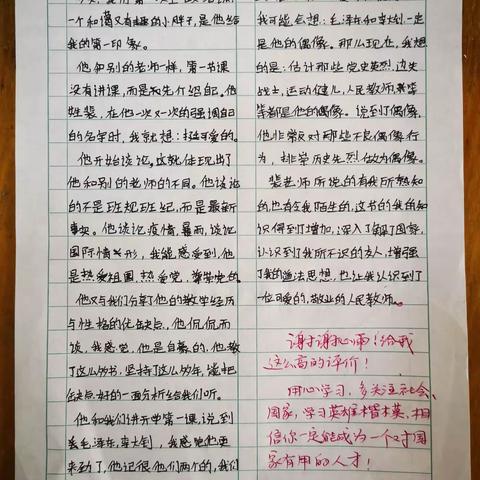 一个和蔼又有趣的小胖子,是他给
我的第一印象。
他和别的老师一样,第一节课
没有讲课,而是和先介绍自己。他
姓裴,在他一次又一次的强调自己
的名字时,我就想:挺可爱的。
他开始谈论。这就体现出了
他和别的老师的不同。他谈论
的不是班规班纪,而是最新
事实。他谈论疫情、暴雨,谈论
国际情形,我能感受到,他
是热爱祖国,热爱党,尊崇党的。
他又与我们分享了他的教学经历
与性格的优缺点,他侃侃而
谈,我感觉,他是自豪的,他教
了这么多年,坚持了这么多年,愿把
缺点好的一面分析给我们听。
他和我们讲开学第一课,说到
毛泽东,李大钊,我感觉他更
来劲了,他记很他们两个的,我们
我可能会想:毛泽东和李大钊一定
是他的偶像。那么现在,我想
的是:估计那些党史英烈,边关
战士,运动健儿,人民教师,等等
等都是他的偶像。说到了偶像,
他非常反对那些不良偶像行
为,推举历史先烈做为偶像。
裴老师所说的有我所熟知
的,也有令我陌生的,这节的我的知
识得到了增加,深入了解了国家,
认识到了我所不识的方人,增强
了我的道法思想,也让我认识到了
一位可爱的,敬业的人民教师。
谢谢你!给我
这么高的评价!
用心学习,多关注社会、
国家,学习英雄楷模,相
信你一定能成为一个对国
家有用的人才!